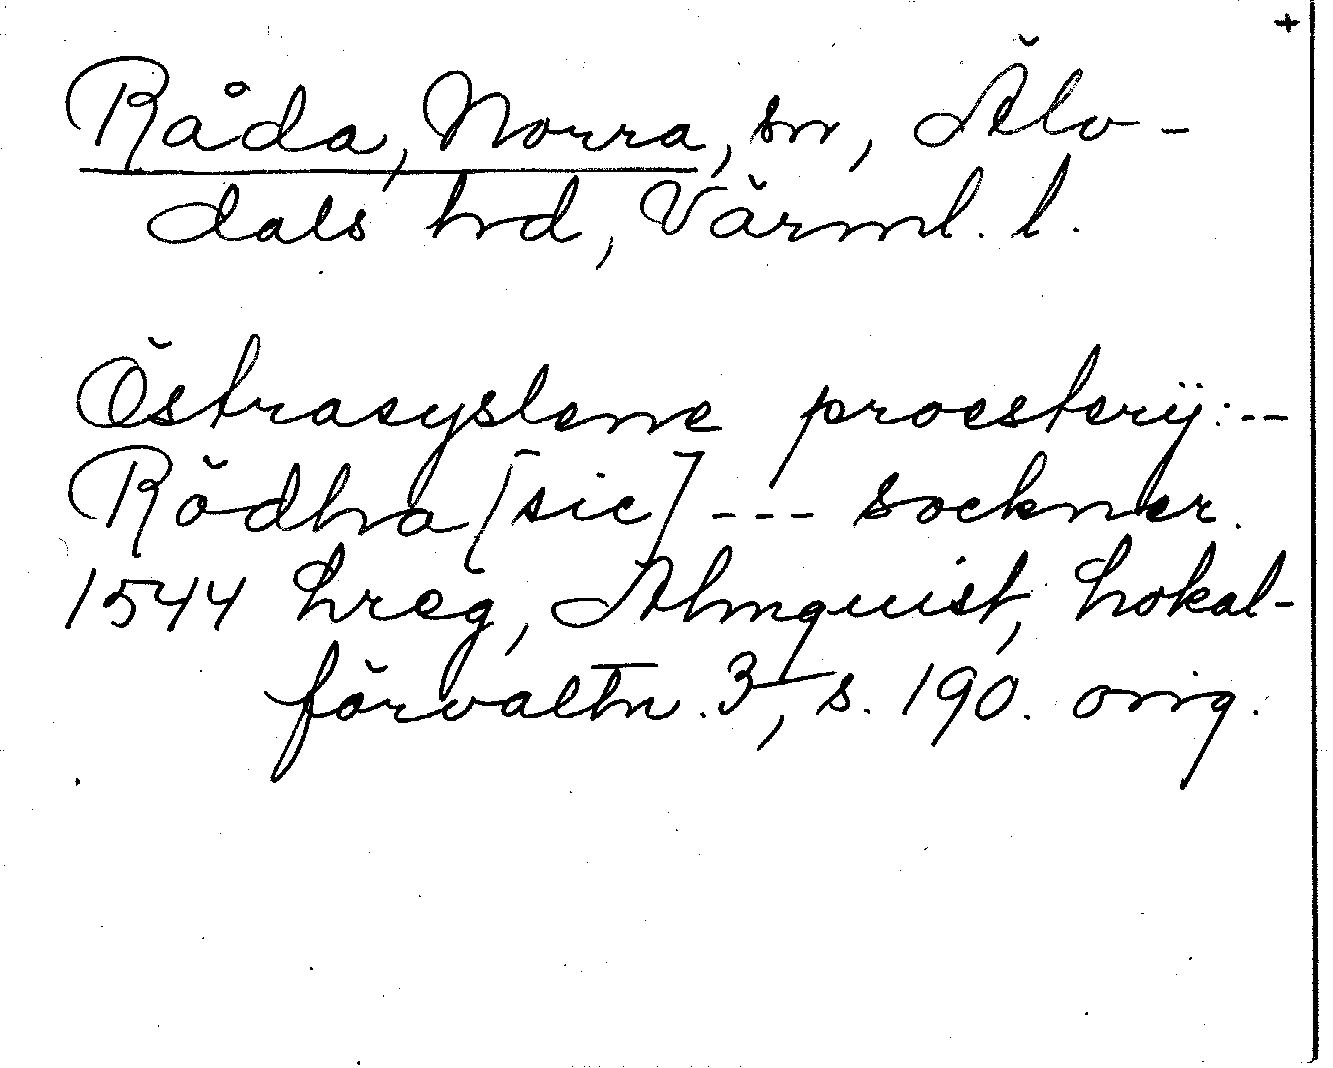 +
Råda, Norra, sn, Älv-
dals hd, Värml. l.
Östrasyslene proesterij: --
Rödha [sic] --- sockner.
1544 hreg, Almquist, Lokal-
förvaltn. 3, s. 190. orig.